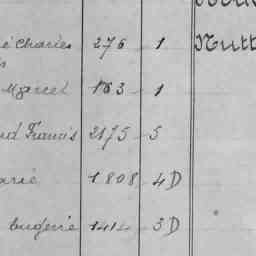 é Charles 276 1 Nutt
s
Marcel 163 1
Francis 2175 5
arie 1808 4D
Eugenie 1414 3D